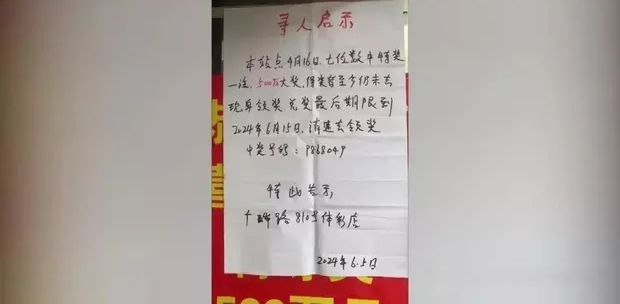 寻人启示
本站点4月16日七位数中特奖
一注，500万大奖，得奖者至今仍未去
现身领奖 兑奖最后期限到
2024年6月15日，请速去领奖
中奖号码：9868049
特此启示
路810号体彩店
2024年6.5日